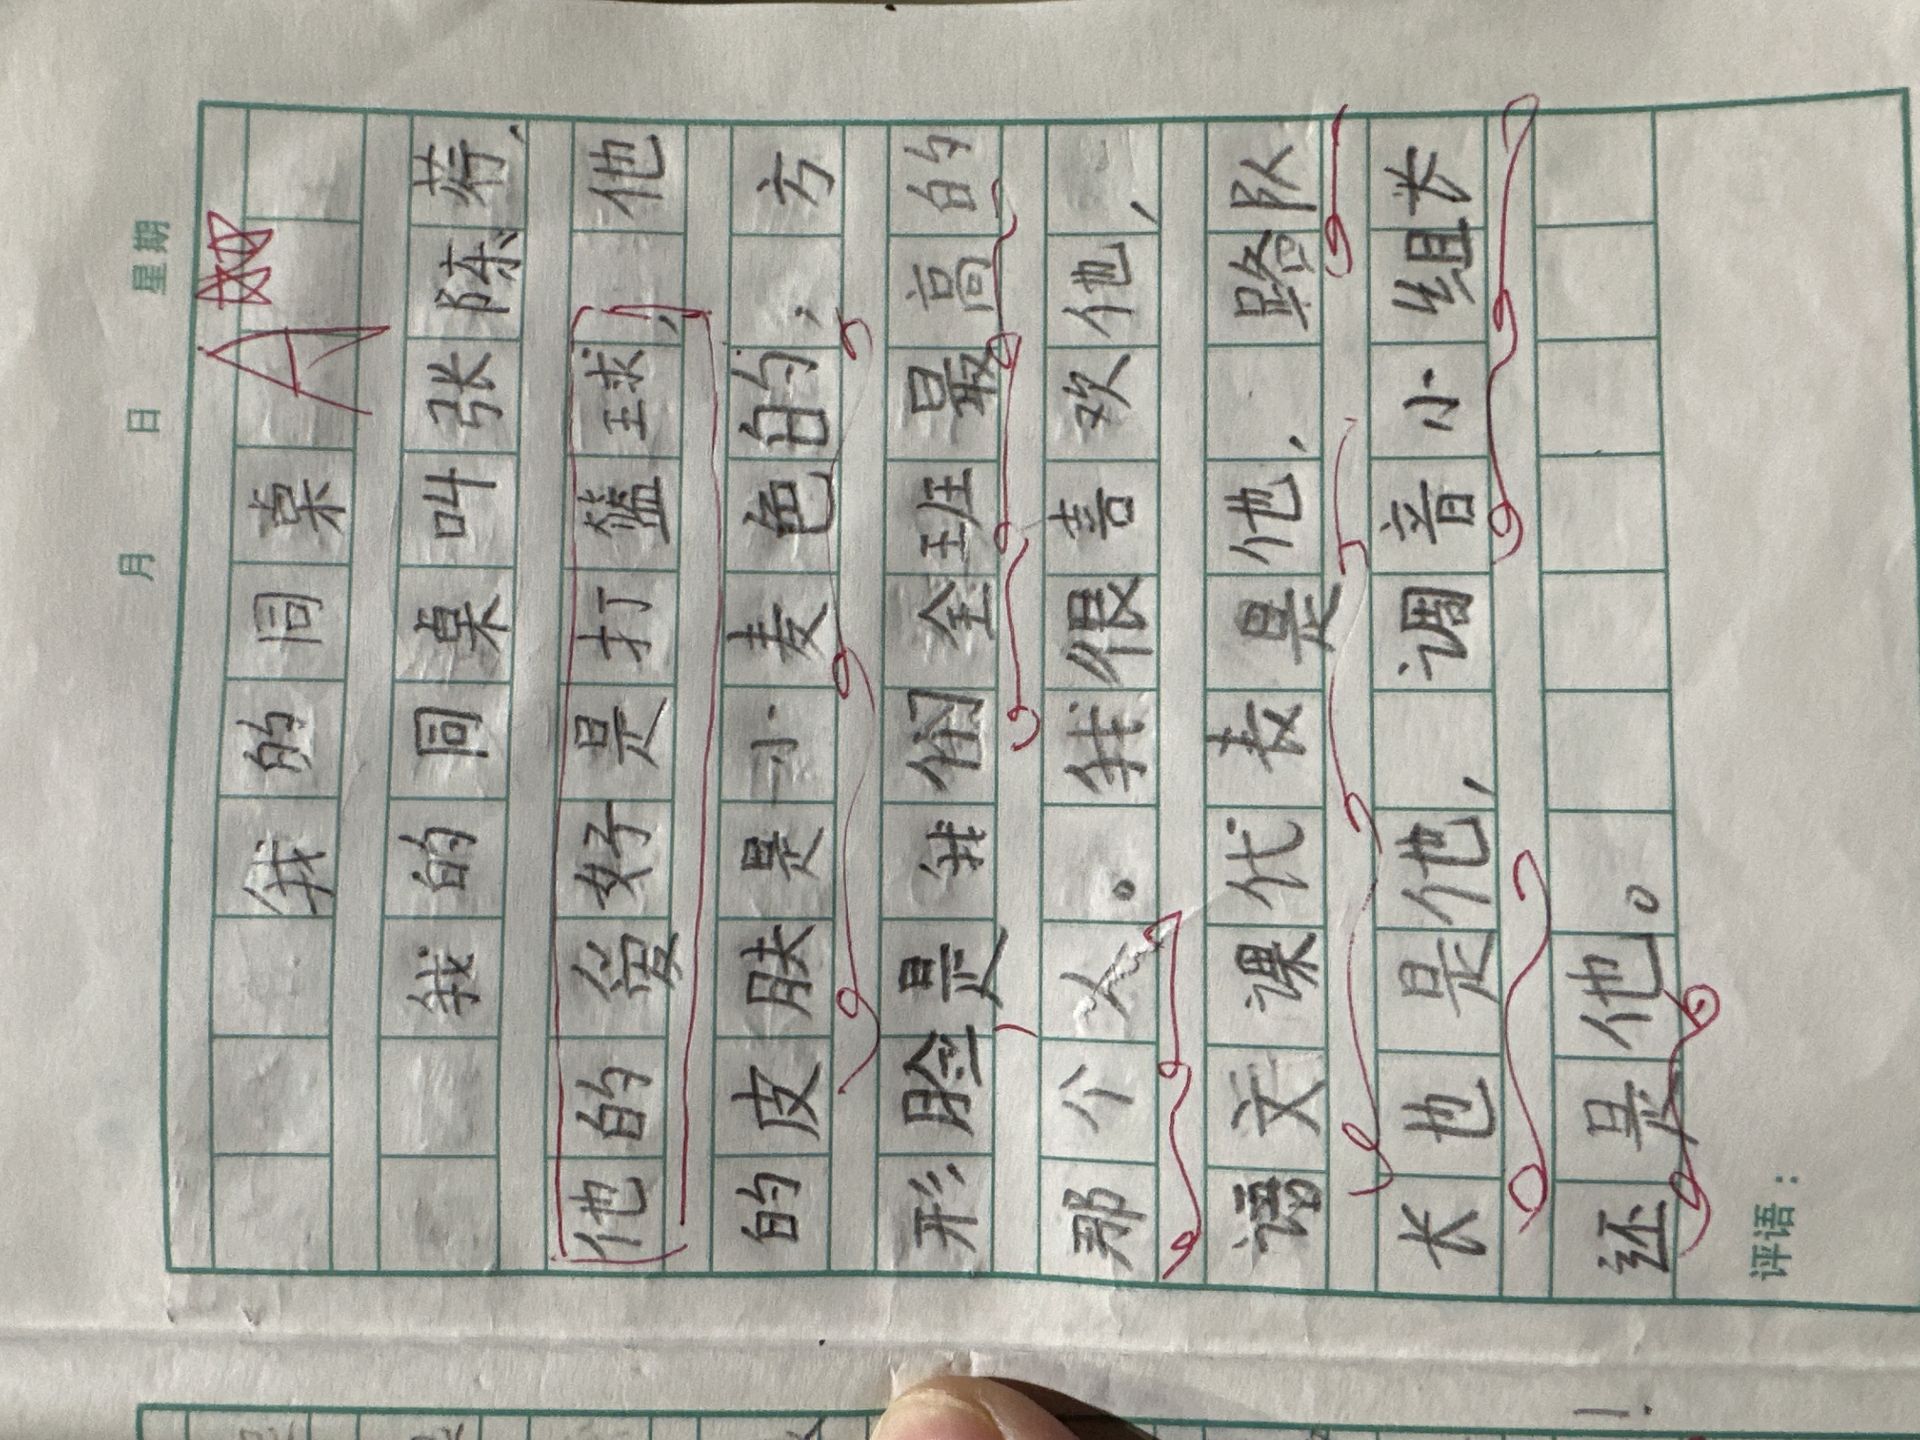 月 日 星期
我的同桌 A
我的同桌叫张陈荇,
他的爱好是打篮球,他
的皮肤是小麦色的,方
形脸是我们全班最高的
那个人。我很喜欢他,
语文课代表是他,路队
长也是他,调音小组长
还是他。
评语: